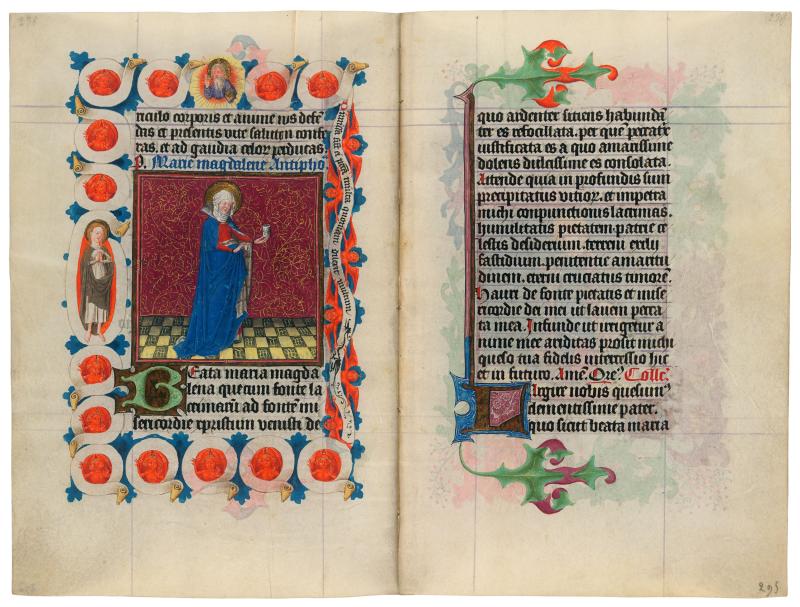 ritculo corporis et anime nos defē
das et presentis vite salutem confe
ras, et ad gaudia celor perducas.
Marie magdalene Antipho
Beata maria magda
lena que cum fonte la
crimarū ad fontē mi
sericordie xpristum venisti de
quo ardenter sitiens habundā
ter es refocillata. per quē peccatrix
iustificata es a quo amarissime
dolens dulcissime es consolata.
Attende quia in profundis sum
precipitatus vitior. et impetra
michi conpunctionis lacrimas.
humilitatis pietatem. patrie ce
lestis desiderium. terreni exilij
fastidium. penitentie amaritu
dinem. eterni cruciatus timorē.
Hauri de fonte pietatis et mise
ricordie dei mei ut lavem pecca
ta mea. Infunde ut irrigetur a
nime mee ariditas prosit michi
queso tua fidelis intercessio hic
et in futuro. Amē. Ore. Collc.
Largire nobis quesum
clementissime pater.
quo sicut beata maria
295